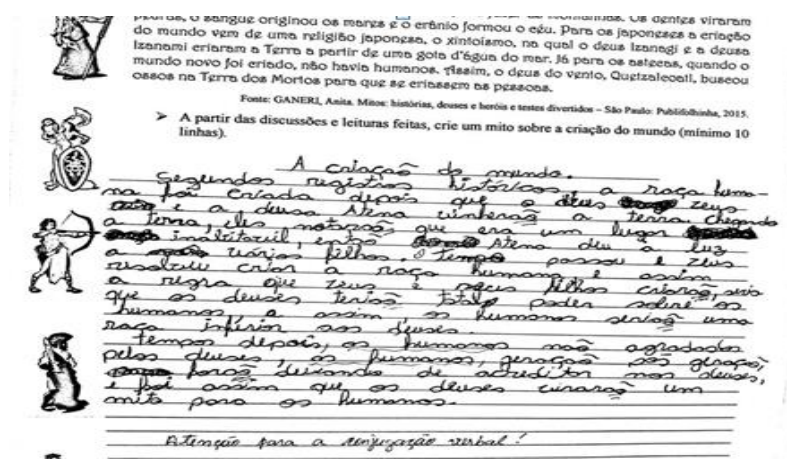 o sangue originou os mares e o crânio formou o céu. Os dentes viraram
do mundo vem de uma religião japonesa, o xintoísmo, no qual o deus Izanagi e a deusa
Izanami criaram a Terra a partir de uma gota d'água do mar. Já para os astecas, quando o
mundo novo foi criado, não havia humanos. Assim, o deus do vento, Quetzalcoatl, buscou
ossos na Terra dos Mortos para que se criassem as pessoas.
Fonte: GANERI, Anita. Mitos: histórias, deuses e heróis e testes divertidos – São Paulo: Publifolhinha, 2015.
➤ A partir das discussões e leituras feitas, crie um mito sobre a criação do mundo (mínimo 10
linhas).
A criação do mundo.
Segundos registros históricos, a raça huma-
na foi criada depois que o deus zeus
e a deusa Atena vinherão a terra. Chegando
a terra, eles notarão que era um lugar
inabitavil, então Atena deu à luz
a vários filhos. O tempo passou e zeus
resolveu criar a raça humana e assim
a regra que zeus e seus filhos criarão, seria
que os deuses terião total poder sobre os
humanos, e assim, os humanos serião uma
raça inferior aos deuses.
tempos depois, os humanos não agradados
pelos deuses, os humanos, geração pós geração,
forão deixando de acreditar nos deuses,
e foi assim que os deuses virarão um
mito para os humanos.
Atenção para a conjugação verbal!